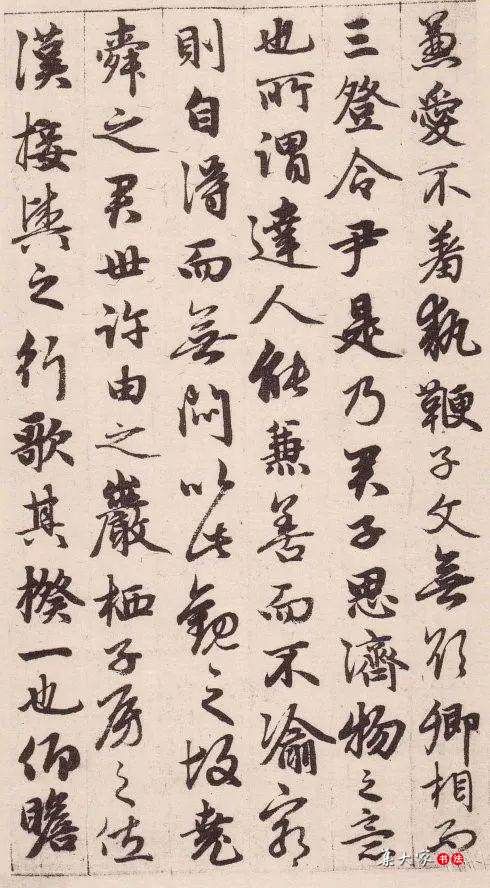 兼愛不羞執鞭子文無欲卿相而
三登令尹是乃君子思濟物之意
也所謂達人能兼善而不渝窮
則自得而無悶以此觀之故堯
舜之君世許由之巖栖子房之佐
漢接輿之行歌其揆一也仰瞻
集大家书法